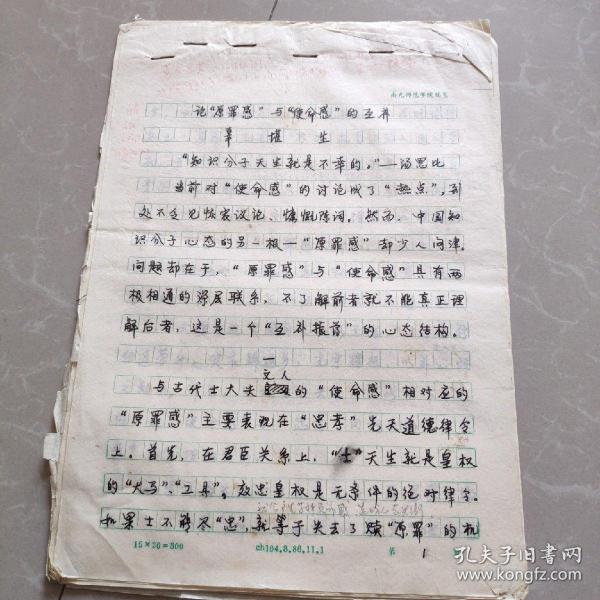 南充师范学院稿笺
论“原罪感”与“使命感”的互补
覃堪生
“知识分子天生就是不幸的。”——汤思比
当前对“使命感”的讨论成了“热点”，到
处不乏见恢宏议论、慷慨陈词。然而，中国知
识分子心态的另一极—“原罪感”却少人问津。
问题却在于，“原罪感”与“使命感”具有两
极相通的深层联系，不了解前者就不能真正理
解后者，这是一个“互补振荡”的心态结构。
一
文人
与古代士大夫的“使命感”相对应的
“原罪感”主要表现在“忠孝”先天道德律令
上。首先，在君臣关系上，“士”天生就是皇权
的“犬马”、“工具”。效忠皇权是无条件的绝对律令。
如果士不能尽“忠”，就等于失去了赎“原罪”的机
15×20=300
ch104.8.86.11.1
第 1
孔夫子旧书网
www.kongfz.com